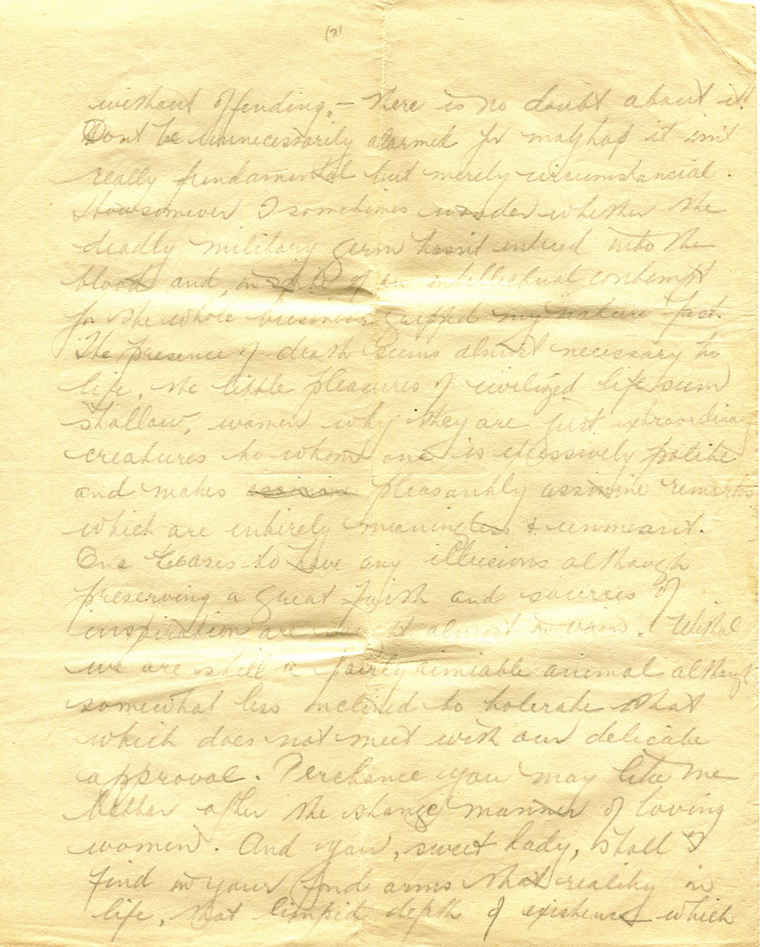 (2)
without offending, – there is no doubt about it!
Don't be unnecessarily alarmed for mayhap it isn't
really fundamental but merely circumstancial.
Howsomever I sometimes wonder whether the
deadly military germ hasn't intered into the
blood and, in spite of an intellectual contempt
for the whole business gripped my nature fast.
The presence of death seems almost necessary to
life, the little pleasures of civilized life seem
shallow, women why they are just extraordinary
creatures to whom one is excessively polite
and makes pleasantly assinine remarks
which are entirely meaningless & unmeant.
One ceases to have any illusions although
preserving a great faith and sources of
inspiration are sought almost in vain. Withal
we are still a fairly aimiable animal although
somewhat less inclined to tolerate that
which does not meet with our delicate
approval. Perchance you may like me
better after the strange manner of loving
women. And you, sweet lady, shall I
find in your fond arms that reality in
life, that limpid depth of existence which